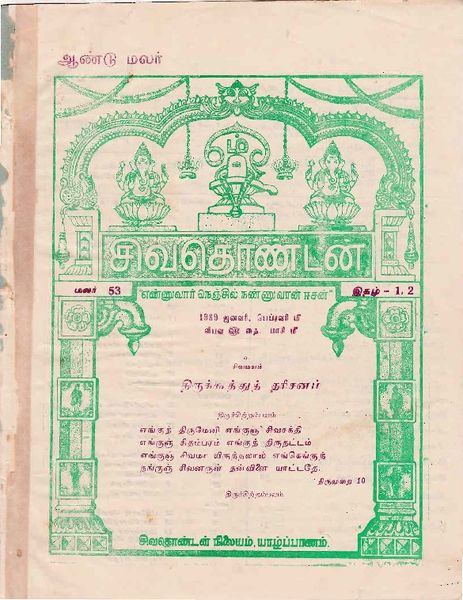 ஆண்டு மலர்
ஓம்
சிவதொண்டன்
மலர் 53
என்னுவார் நெஞ்சில் நண்ணுவான் ஈசன்
இதழ் - 1, 2
1989 ஜனவரி, பெப்ரவரி மீ
விபவ ௵ தை, மாசி மீ
உ
சிவமயம்
திருக்கூத்துத் தரிசனம்
திருச்சிற்றம்பலம்
எங்குந் திருமேனி எங்குஞ் சிவசக்தி
எங்குஞ் சிதம்பரம் எங்குந் திருநட்டம்
எங்குஞ் சிவமா யிருத்தலால் எங்கெங்குந்
தங்குஞ் சிவனருள் தன்விளை யாட்டதே.
திருமுறை 10
திருச்சிற்றம்பலம்
சிவதொண்டன் நிலையம், யாழ்ப்பாணம்.